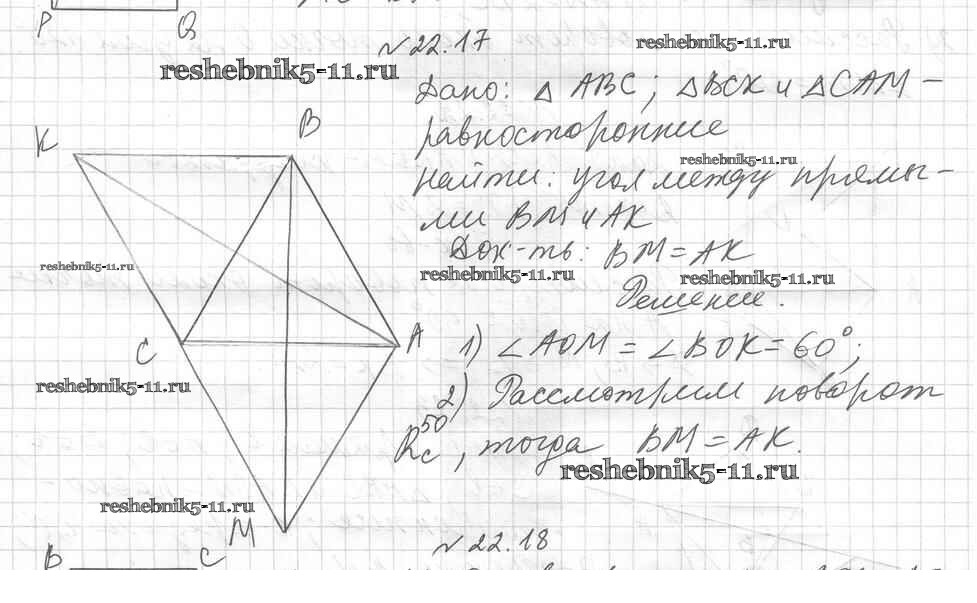 P Q
№ 22.17
reshebnik5-11.ru
reshebnik5-11.ru
Дано: △ ABC; △BCK и △CAM –
равносторонние
reshebnik5-11.ru
Найти: угол между прямы-
ми BM и AK
Док-ть: BM = AK
reshebnik5-11.ru
reshebnik5-11.ru
Решение.
1) ∠AOM = ∠BOK = 60°;
2) Рассмотрим поворот
R_C^50, тогда BM = AK.
reshebnik5-11.ru
K
B
reshebnik5-11.ru
C
A
reshebnik5-11.ru
reshebnik5-11.ru
M
№ 22.18
B C